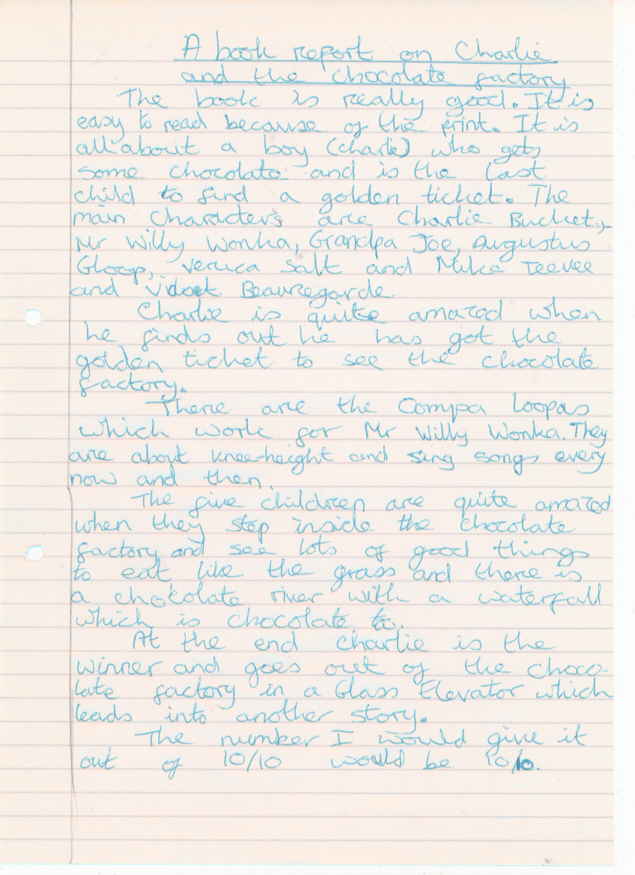 A book report on Charlie
and the chocolate factory
The book is really good. It is
easy to read because of the print. It is
all about a boy (charlie) who gets
some chocolate and is the last
child to find a golden ticket. The
main Characters are Charlie Bucket,
Mr Willy Wonka, Grandpa Joe, Augustus
Gloop, Veruca Salt and Mike Teevee
and Violet Beauregarde.
Charlie is quite amazed when
he finds out he has got the
golden ticket to see the chocolate
factory.
There are the Oompa Loopas
which work for Mr Willy Wonka. They
are about knee-height and sing songs every
now and then.
The five children are quite amazed
when they step inside the chocolate
factory and see lots of good things
to eat like the grass and there is
a chokolate river with a waterfall
which is chocolate to.
At the end Charlie is the
winner and goes out of the choco-
late factory in a Glass Elevator which
leads into another story.
The number I would give it
out of 10/10 would be 10/10.